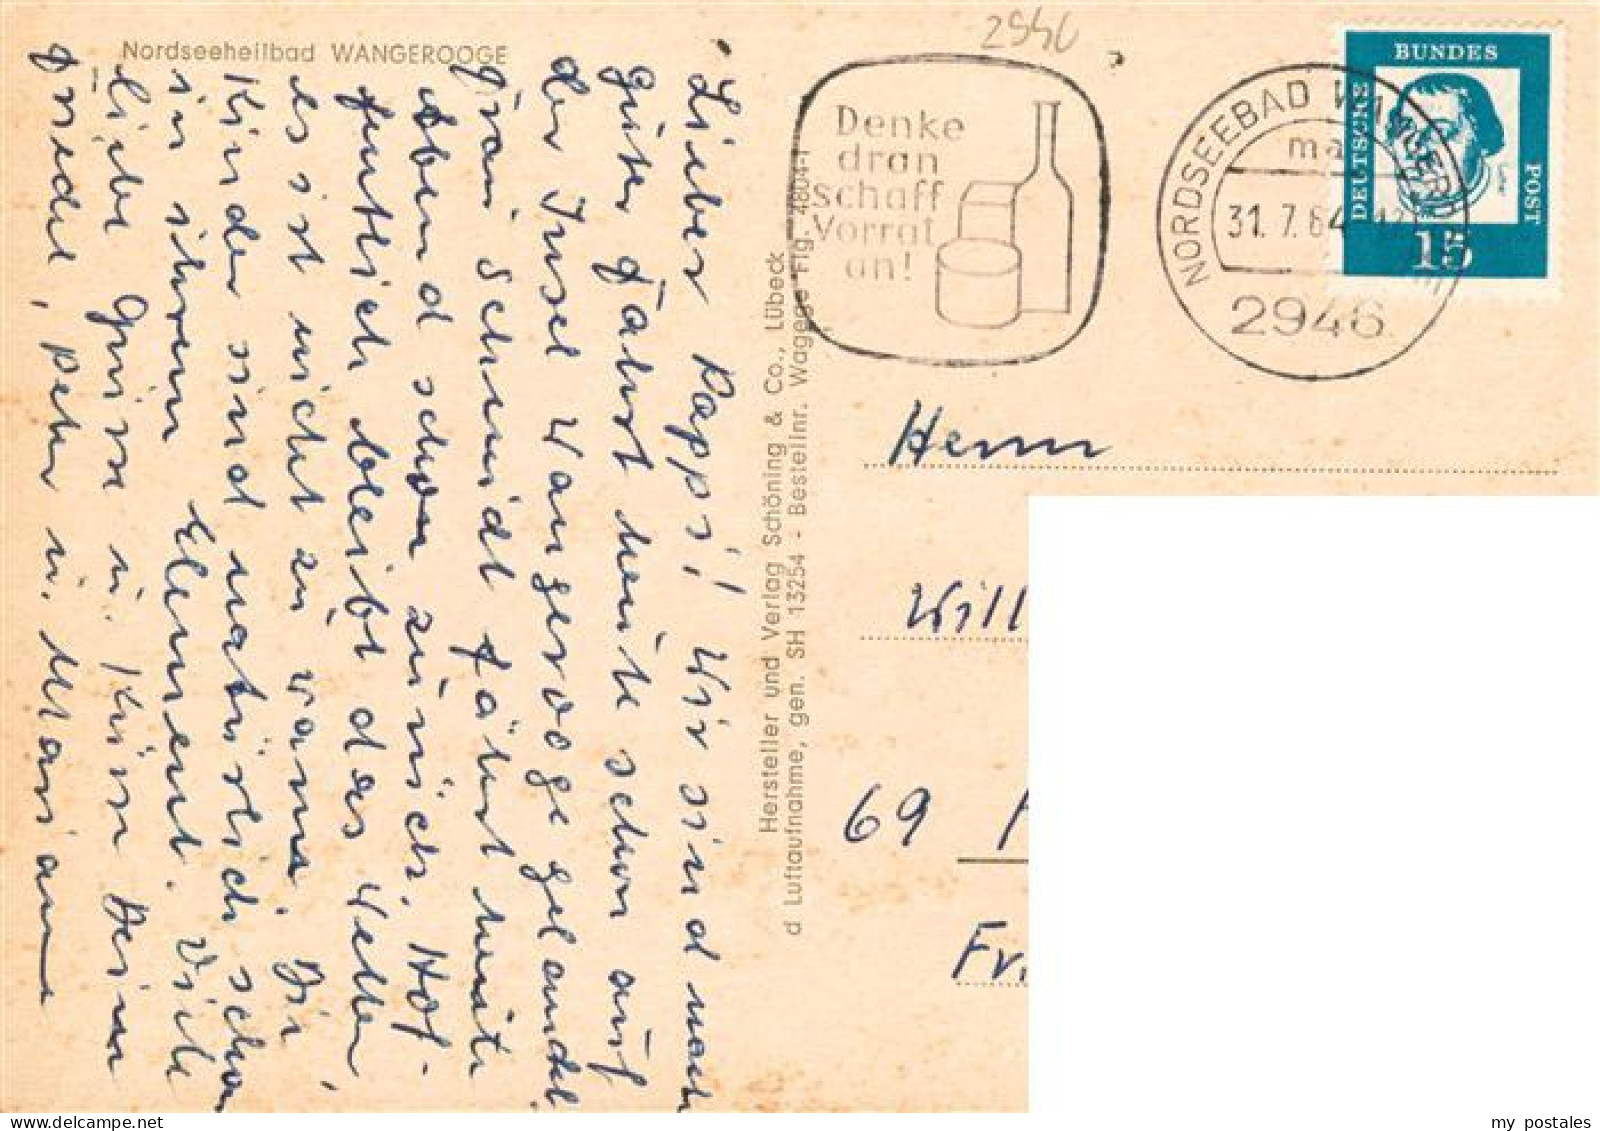 Nordseeheilbad WANGEROOGE
Lieber Pappi! Wir sind nach
guter Fahrt heute schon auf
der Insel Wangerooge gelandet.
Frau Schmidt fährt heute
Abend schon zurück. Hof-
fentlich bleibt das Wetter
es ist nicht zu warm. Die
Kinder sind natürlich schon
in ihrem Element. Viele
liebe Grüße u. Küsse Deine
Friedel, Peter u. Mariann
Hersteller und Verlag Schöning & Co., Lübeck
d Luftaufnahme, gen. SH 13254 - Bestellnr. Wagege Flg. 4804-1
2946
Denke
dran
schaff
Vorrat
an!
NORDSEEBAD WANGEROOGE
ma
31.7.64-12
2946
BUNDES
DEUTSCHE
POST
15
Herrn
Will
69
Fr.
my postales